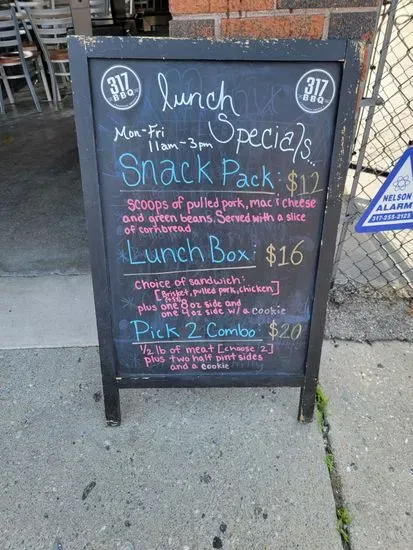 317
BBQ
317
BBQ
lunch
Specials...
Mon-Fri
11am-3pm
Snack Pack: $12
Scoops of pulled pork, mac & cheese
and green beans. Served with a slice
of cornbread
Lunch Box: $16
choice of sandwich:
[Brisket, pulled pork, chicken]
plus one 8 oz side and
one 4 oz side w/ a cookie
Pick 2 Combo: $20
1/2 lb of meat [choose 2]
plus two half pint sides
and a cookie
NELSON
ALARM
317-255-2125